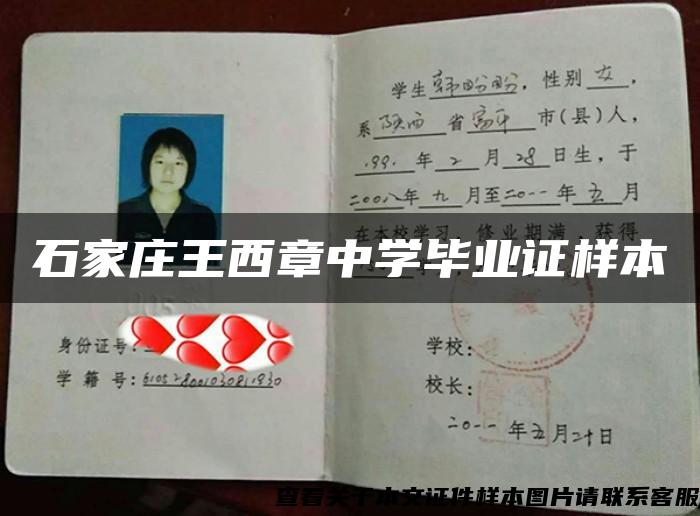 学生韩盼盼，性别女，
系陕西省富平市(县)人，
1991年2月28日生，于
二00八年九月至二0一一年五月
在本校学习，修业期满，获得
石家庄王西章中学毕业证样本
身份证号:
学籍号:610528001030811930
学校:
校长:
二0一一年五月二十日
查看关于本文证件样本图片请联系客服